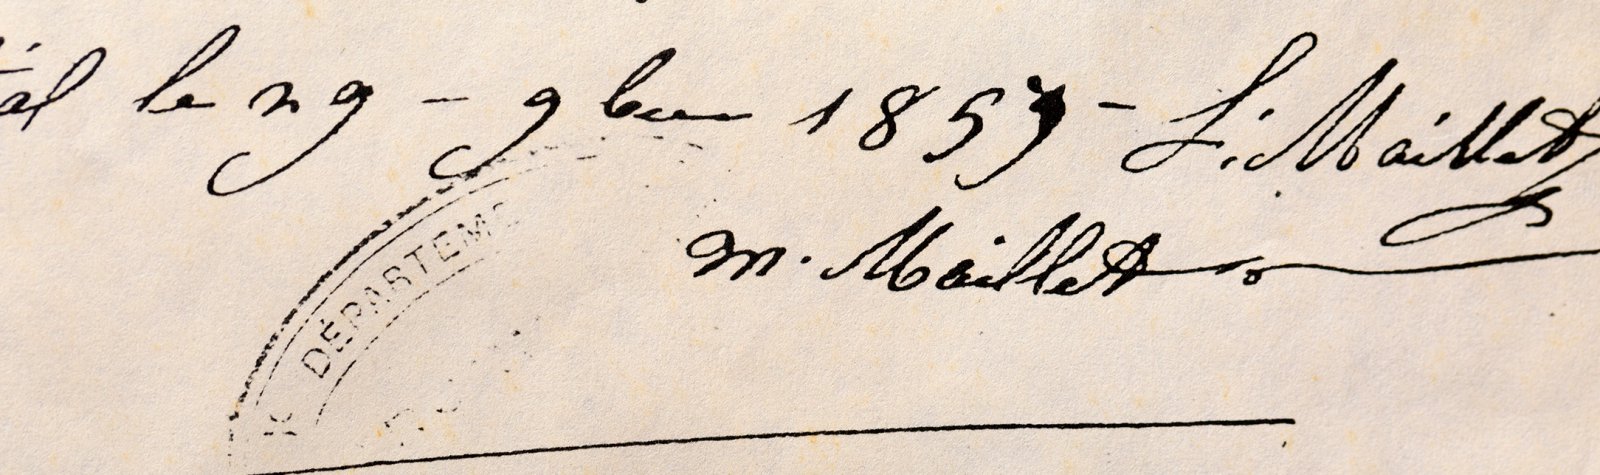 le 29 - 9bre 1857 - L. Maillet
M. Maillet
DÉPARTEME